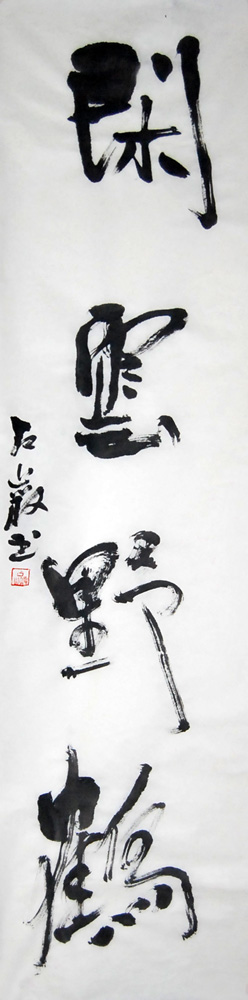 閑雲野鶴
石巖书